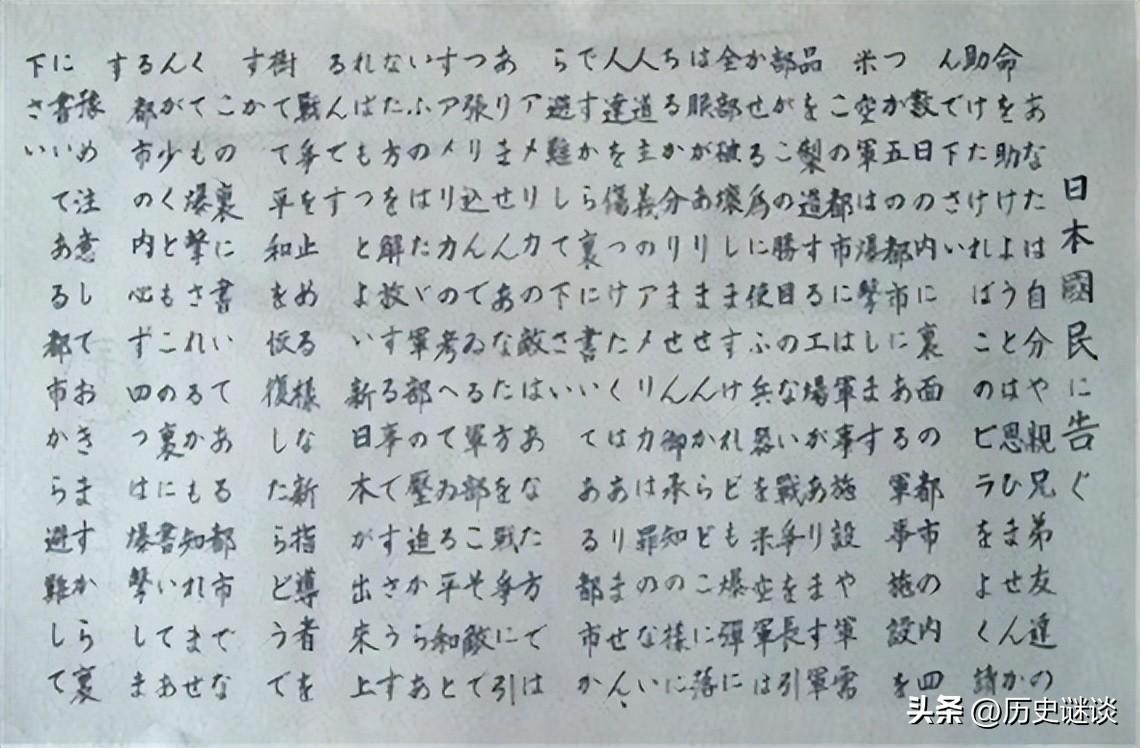 日本國民に告ぐ
あなたは自分や親兄弟友達の
命を助けようとは思ひませんか
助けたければこのビラをよく讀
んで下さい
数日の内に裏面の都市の内四
つか五つの都市にある軍事施設を
米空軍は爆撃します
この都市には軍事施設や軍需
品を製造する工場があります軍
部がこの勝目のない戰争を長引
かせる為に使ふ兵器を米空軍は
全部破壊しますけれども爆弾に
は眼がありませんからどこに落
ちるか分りません御承知の様に
人道主義のアメリカは罪のない
人達を傷つけたくはありません
ですから裏に書いてある都市か
ら避難して下さい
アメリカの敵はあなた方では
ありませんあなた方を戦争に引
つ張り込んでゐる軍部こそ敵で
すアメリカの考へてゐる平和と
いふのはたゞ軍部の壓迫からあ
なた方を解放する事ですさうす
ればもつとよい新日本が出来上
るんです
戰争を止める様な新指導者を
樹てて平和を恢復したらどうで
すか
この裏に書いてある都市でな
くても爆撃されるかも知れませ
んが少くともこの裏に書いてあ
る都市の内必ず四つは爆撃しま
す
豫め注意しておきますから裏
に書いてある都市から避難して
下さい
头条 @历史谜谈